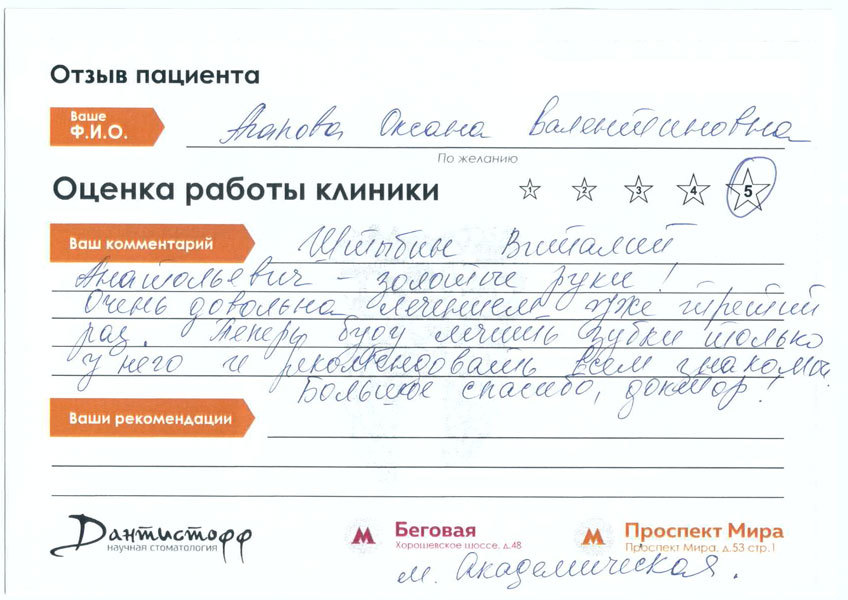 Отзыв пациента
Ваше
Ф.И.О.
Агапова Оксана Валентиновна
По желанию
Оценка работы клиники
1 2 3 4 5
Ваш комментарий
Штыбин Виталий
Анатольевич - золотые руки!
Очень довольна лечением уже третий
раз. Теперь буду лечить зубки только
у него и рекомендовать всем знакомым.
Большое спасибо, доктор!
Ваши рекомендации
Дантистофф
научная стоматология
Беговая
Хорошевское шоссе, д.48
Проспект Мира
Проспект Мира, д.53 стр.1
м. Академическая.